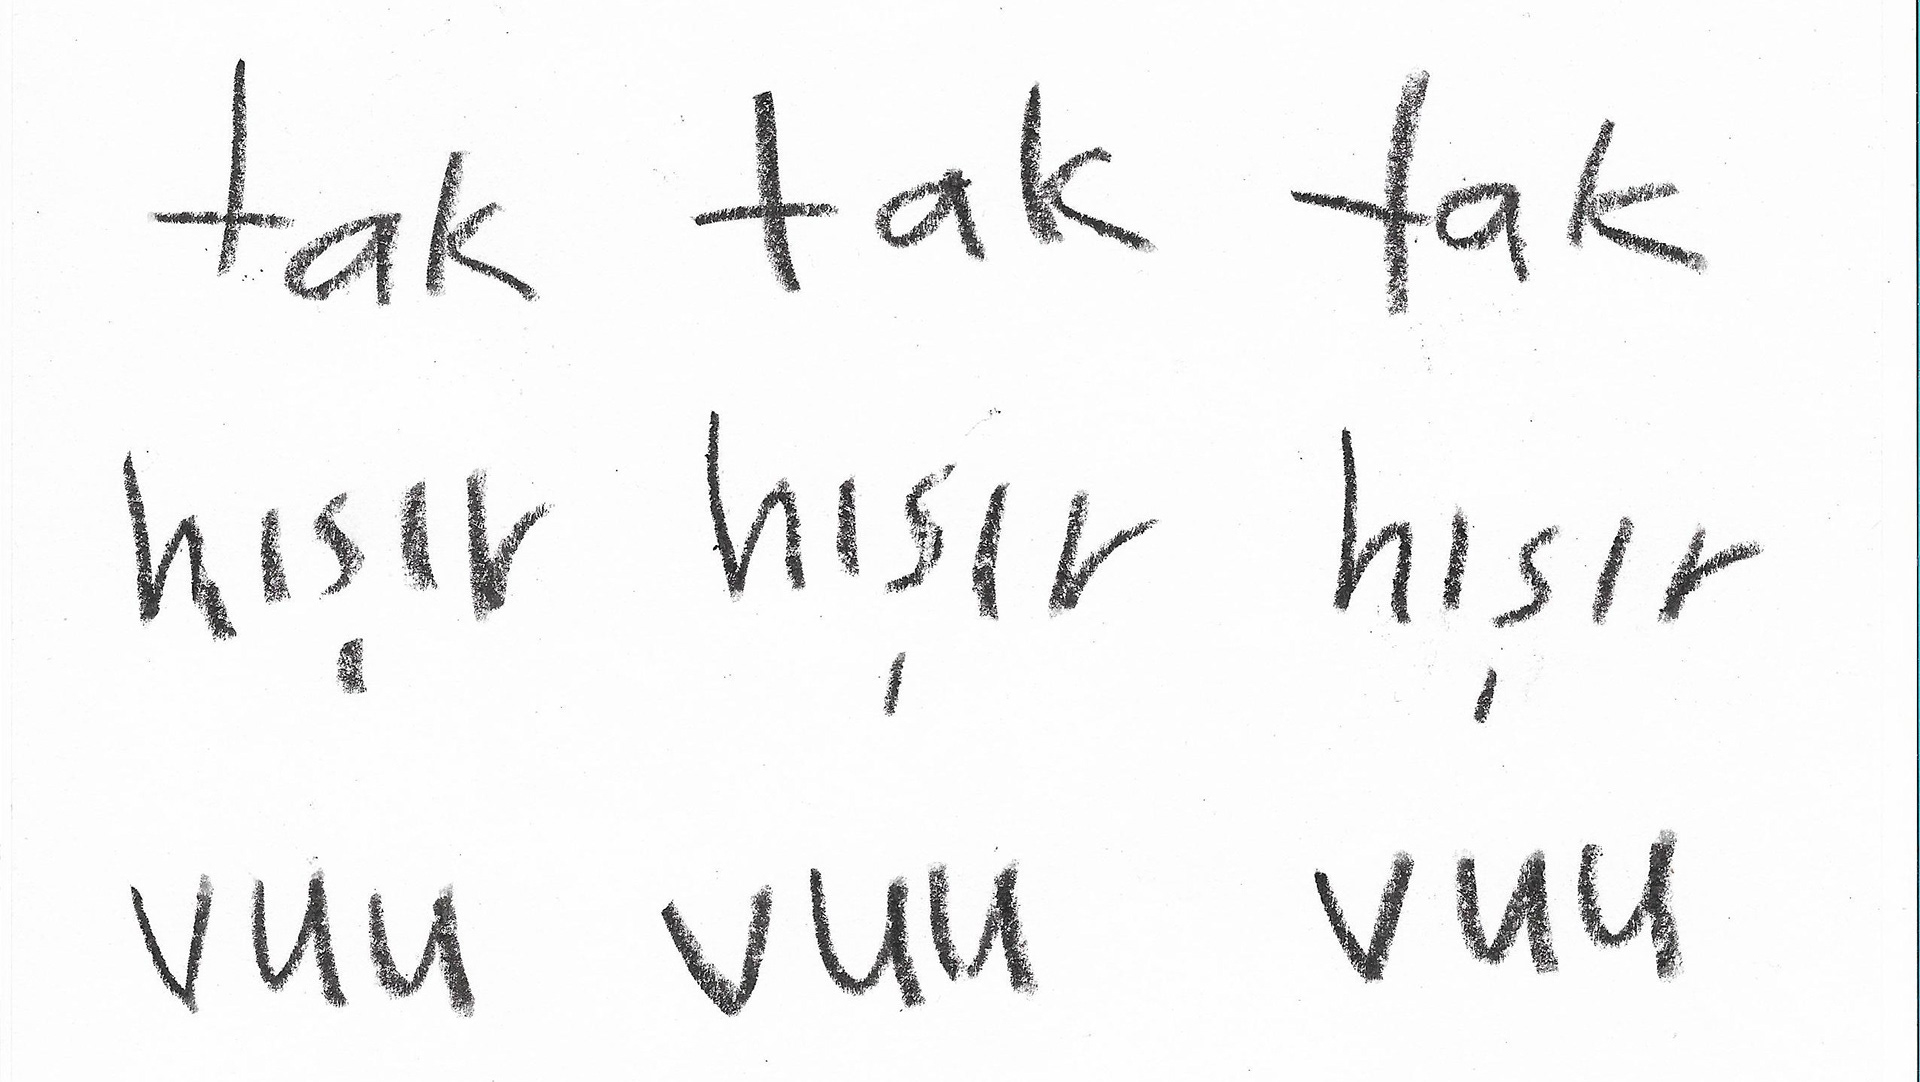 tak tak tak
hışır hışır hışır
vuu vuu vuu